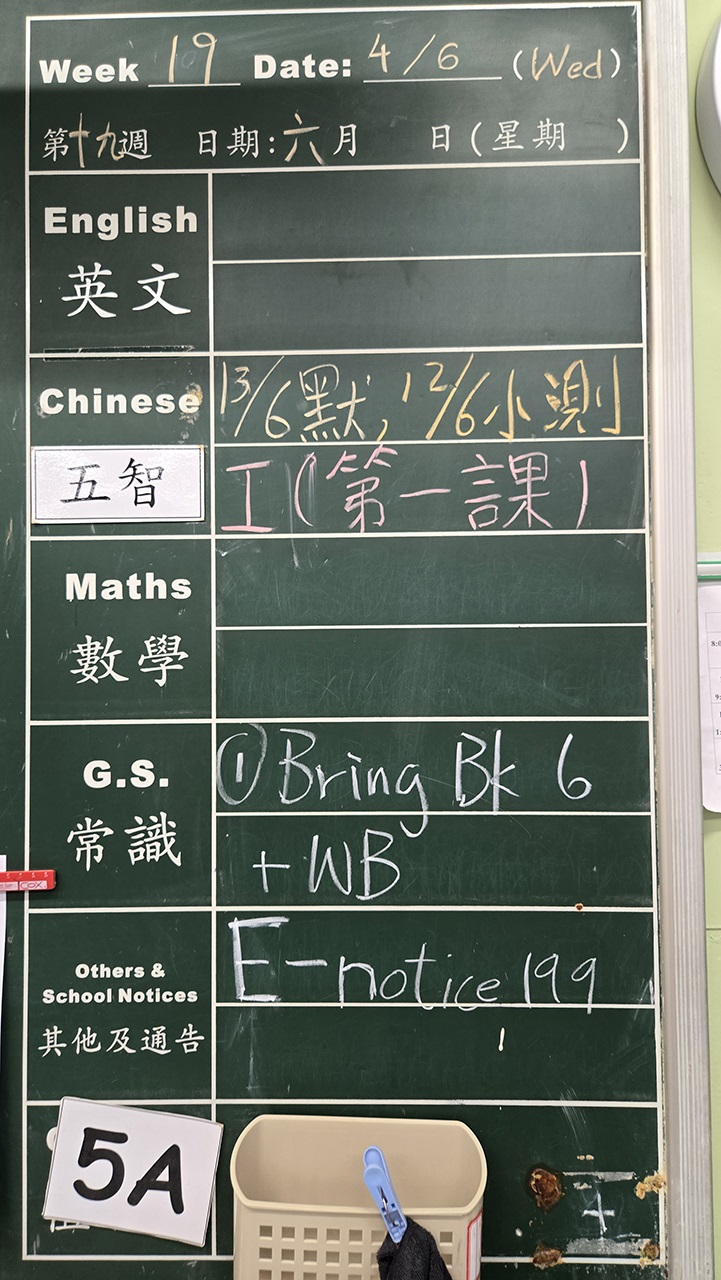 Week 19 Date: 4/6 (Wed)
第十九週 日期:六月 日(星期 )
English
英文
Chinese 13/6默, 12/6小測
五智 工(第一課)
Maths
數學
G.S. ①Bring Bk 6
常識 + WB
Others &
School Notices
E-notice 199
其他及通告
5A
COX